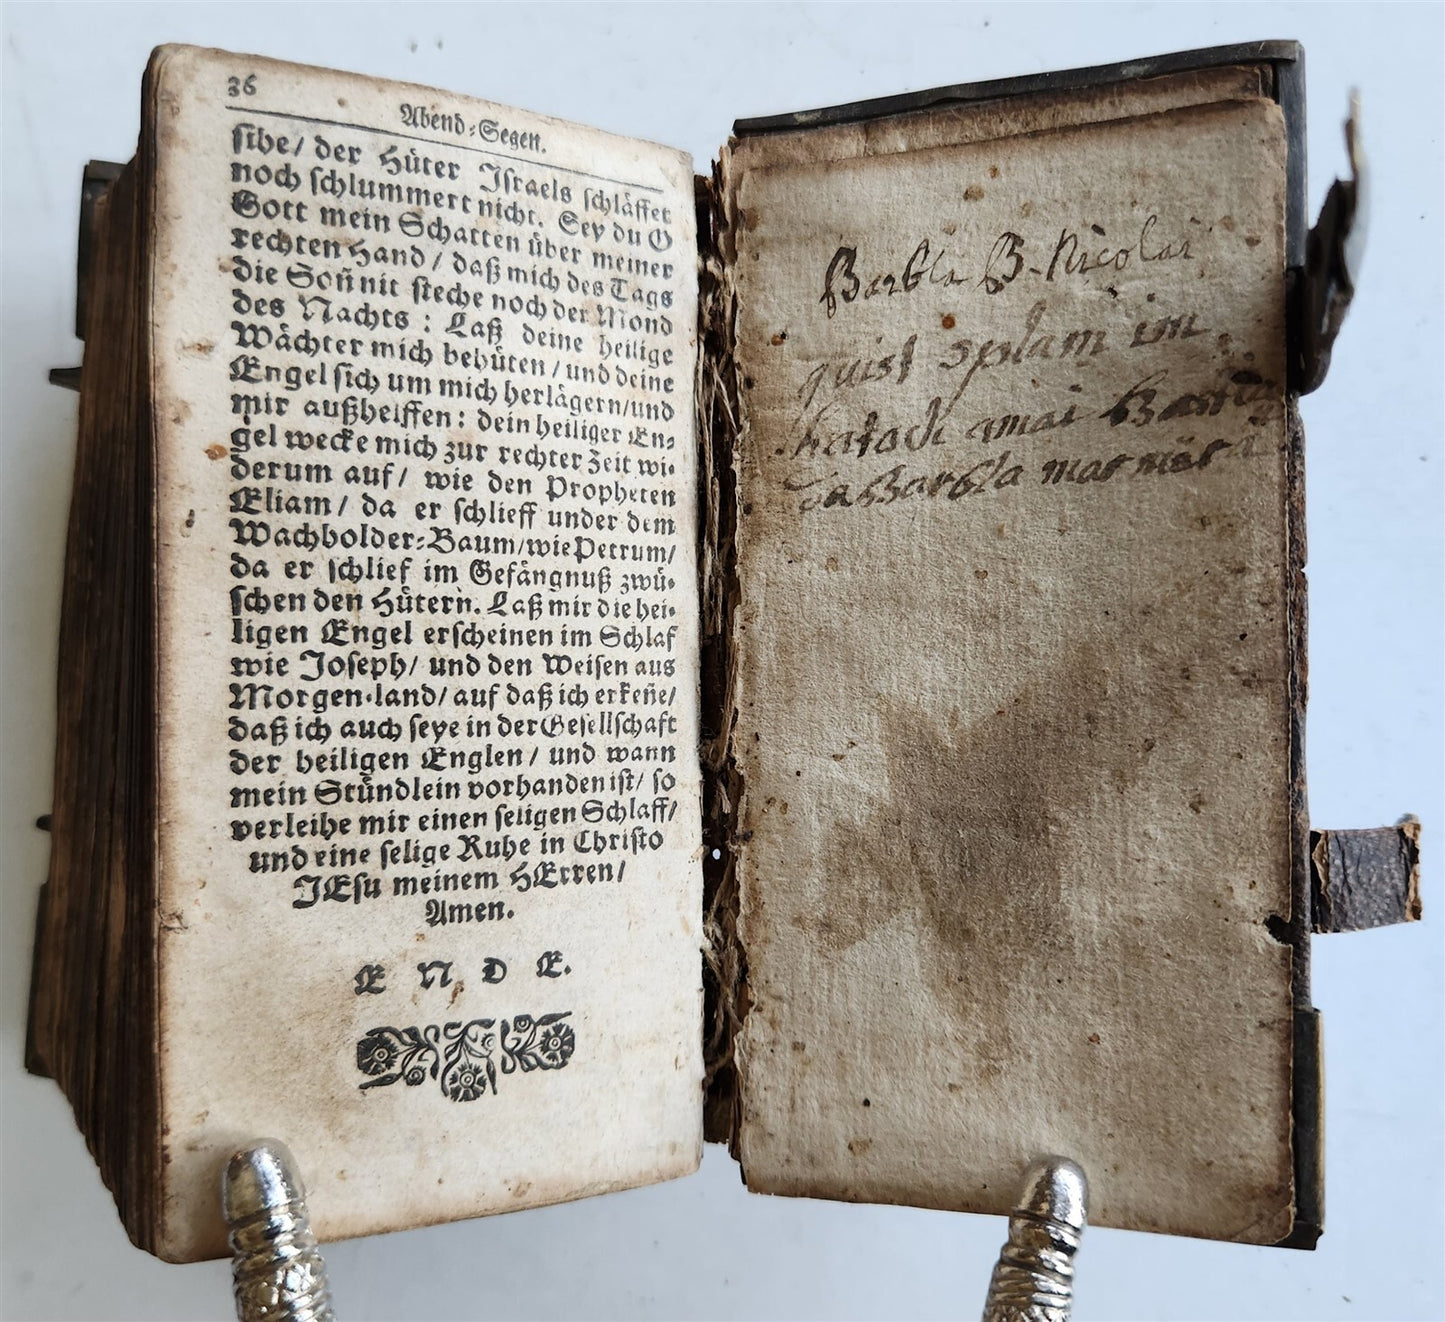 36
Abend-Segen.
sihe/ der Hüter Israels schläffet
noch schlummert nicht. Sey du O
Gott mein Schatten über meiner
rechten Hand/ daß mich des Tags
die Soñ nit steche noch der Mond
des Nachts: Laß deine heilige
Wächter mich behüten/ und deine
Engel sich um mich herlägern/ und
mir außhelffen: dein heiliger En-
gel wecke mich zur rechter Zeit wi-
derum auf/ wie den Propheten
Eliam/ da er schlieff under dem
Wachholder-Baum/ wie Petrum/
da er schlief im Gefängnuß zwü-
schen den Hütern. Laß mir die hei-
ligen Engel erscheinen im Schlaf
wie Joseph/ und den Weisen aus
Morgen-land/ auf daß ich erkeñe/
daß ich auch seye in der Gesellschaft
der heiligen Englen/ und wann
mein Stündlein vorhanden ist/ so
verleihe mir einen seligen Schlaff/
und eine selige Ruhe in Christo
JEsu meinem HErren/
Amen.
E N D E.
Barbla B. Nicolai
quist splam im
Barbla